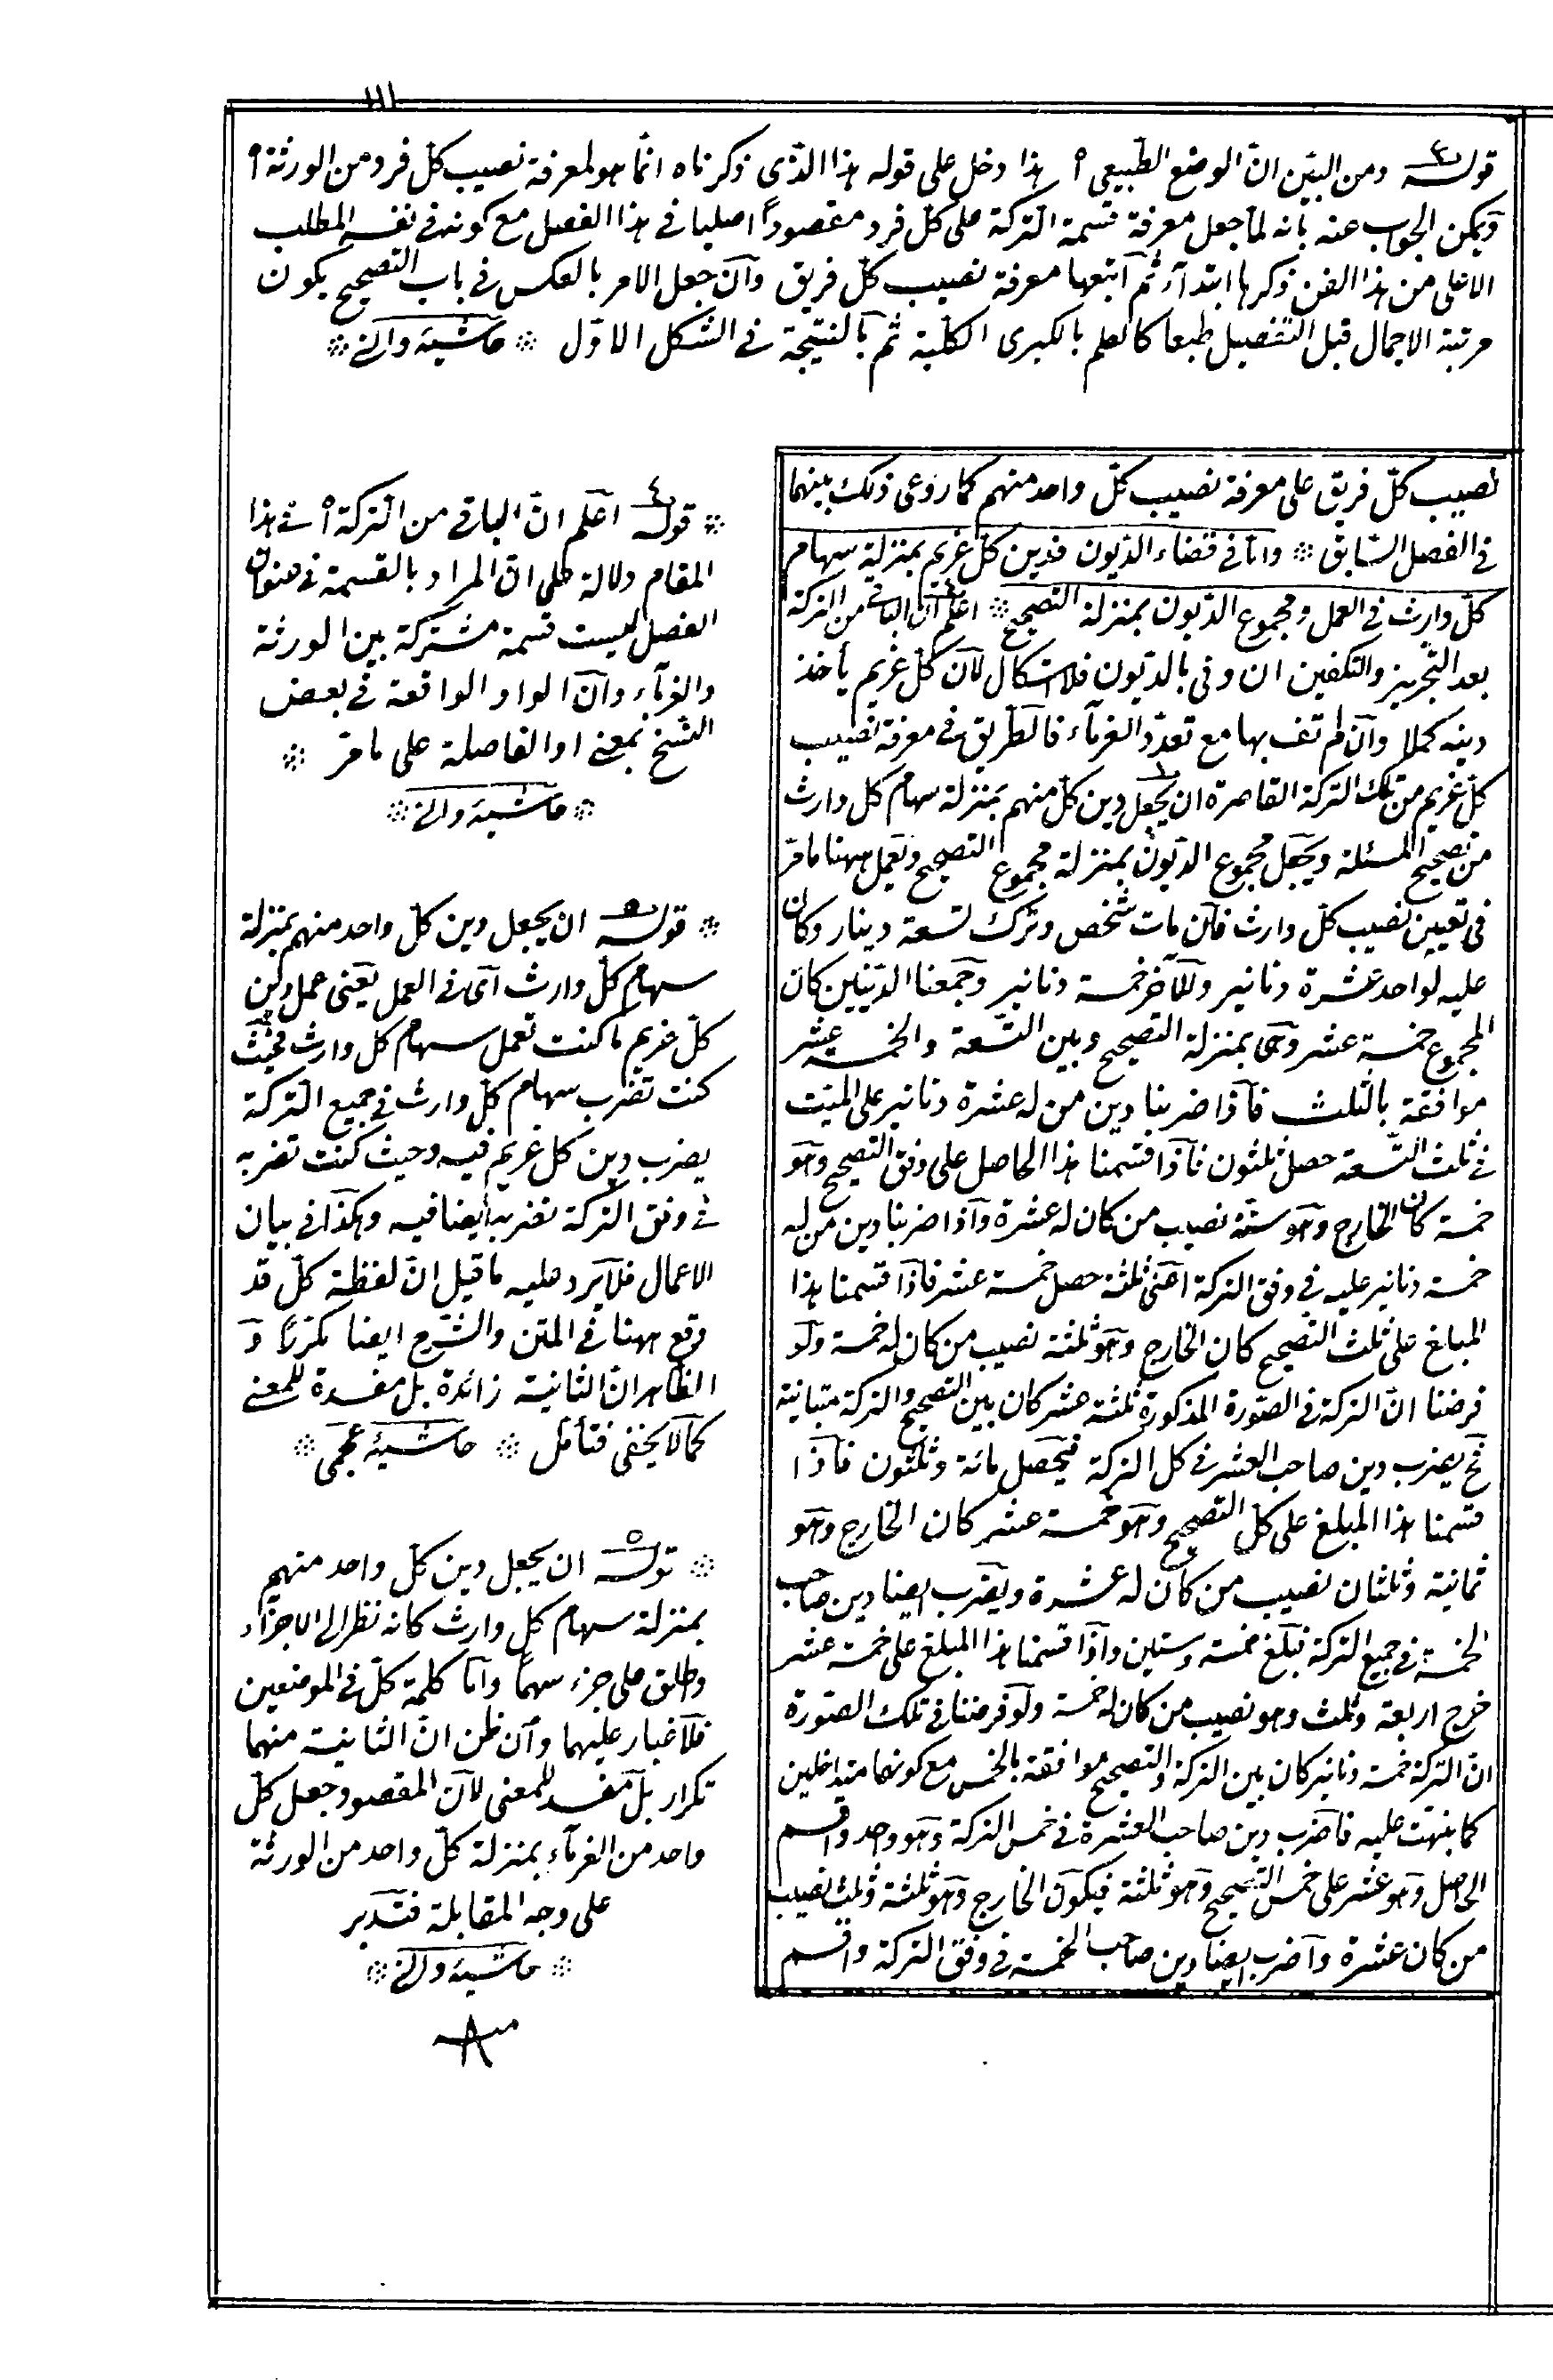 ١١١
قوله ومن البيّن انّ الوضع الطّبيعى اه هذا دخل على قوله هذا الّذى ذكرناه انّما هو لمعرفة نصيب كلّ فرد من الورثة اه
ويمكن الجواب عنه بانه لما جعل معرفة قسمة التركة على كلّ فرد مقصوداً اصليا فى هذا الفصل مع كونه فى نفسه المطلب
الاعلى من هذا الفن ذكرها ابتدآء ثم اتبعها معرفة نصيب كلّ فريق وان جعل الامر بالعكس فى باب التصحيح يكون
مرتبة الاجمال قبل التفصيل طبعا كالعلم بالكبرى الكلّية ثم بالنتيجة فى الشكل الاوّل حاشيۀ والخ
نصيب كلّ فريق على معرفة نصيب كلّ واحد منهم كما روعى ذلك بينهما
فى الفصل السّابق وامّا فى قضاء الدّيون فدين كلّ غريم بمنزلة سهام
كلّ وارث فى العمل ومجموع الدّيون بمنزلة التصحيح اعلم انّ الباقى من التركة
بعد التّجهيز والتكفين ان وفى بالديون فلا اشكال لان كلّ غريم يأخذ
دينه كملا وان لم تف بها مع تعدّد الغرمآء فالطّريق فى معرفة نصيب
كلّ غريم من تلك التركة القاصرة ان يجعل دين كلّ منهم بمنزلة سهام كلّ وارث
من تصحيح المسئلة ويجعل مجموع الدّيون بمنزلة مجموع التصحيح ويعمل ههنا ما مرّ
فى تعيين نصيب كلّ وارث فان مات شخص وترك تسعة دينار وكان
عليه لواحد عشرة دنانير وللآخر خمسة دنانير وجمعنا الدّينين كان
المجموع خمسة عشر وهى بمنزلة التصحيح وبين التّسعة والخمسة عشر
موافقة بالثلث فاذا ضربنا دين من له عشرة دنانير على الميّت
فى ثلث التّسعة حصل ثلثون فاذا قسمنا هذا الحاصل على وفق التصحيح وهو
خمسة كان الخارج وهو ستة نصيب من كان له عشرة واذا ضربنا دين من له
خمسة دنانير عليه فى وفق التركة اعنى ثلثة حصل خمسة عشر فاذا قسمنا هذا
المبلغ على ثلث التصحيح كان الخارج وهو ثلثة نصيب من كان له خمسة ولو
فرضنا انّ التركة فى الصّورة المذكورة ثلثة عشر كان بين التصحيح والتركة مباينة
فح يضرب دين صاحب العشر فى كل التركة فيحصل مائة وثلثون فاذا
قسمنا هذا المبلغ على كلّ التصحيح وهو خمسة عشر كان الخارج وهو
ثمانية وثلثان نصيب من كان له عشرة ويضرب ايضا دين صاحب
الخمسة فى جميع التركة فبلغ خمسة وستين واذا قسمنا هذا المبلغ على خمسة عشر
خرج اربعة وثلث وهو نصيب من كان له خمسة ولو فرضنا فى تلك الصّورة
انّ التركة خمسة دنانير كان بين التركة والتصحيح موافقة بالخمس مع كونهما متداخلين
كما نبهت عليه فاضرب دين صاحب العشرة فى خمس التركة وهو واحد واقسم
الحاصل وهو عشر على خمس التصحيح وهو ثلثة فيكون الخارج وهو ثلثة وثلث نصيب
من كان عشرة واضرب ايضا دين صاحب الخمسة فى وفق التركة واقسم
قوله اعلم انّ الباقى من التركة اه فى هذا
المقام دلالة على انّ المراد بالقسمة فى عنوان
الفصل ليست قسمة مشتركة بين الورثة
والغرمآء وان الواو الواقعة فى بعض
النّسخ بمعنى او الفاصلة على ما مرّ
حاشيۀ والخ
قوله ان يجعل دين كلّ واحد منهم بمنزلة
سهام كلّ وارث اى فى العمل يعنى عمل دين
كلّ غريم ما كنت تعمل سهام كلّ وارث فحيث
كنت تضرب سهام كلّ وارث فى جميع التركة
يضرب دين كل غريم فيه وحيث كنت تضربه
فى وفق التركة تضربه ايضا فيه وهكذا فى بيان
الاعمال فلا يرد عليه ما قيل انّ لفظة كلّ قد
وقع ههنا فى المتن والشّرح ايضا مكرّرًا و
الظاهر انّ الثانية زائدة بل مفسدة للمعنى
كما لا يخفى فتأمل حاشيۀ عجمى
قوله ان يجعل دين كلّ واحد منهم
بمنزلة سهام كلّ وارث كانه نظر الى الاجزاء
واطلق على جزء سهمًا وامّا كلمة كلّ فى الموضعين
فلا غبار عليهما وان ظن انّ الثانية منهما
تكرار بل مفسد للمعنى لان المقصود جعل كلّ
واحد من الغرمآء بمنزلة كلّ واحد من الورثة
على وجه المقابلة فتدبر
حاشيۀ والخ